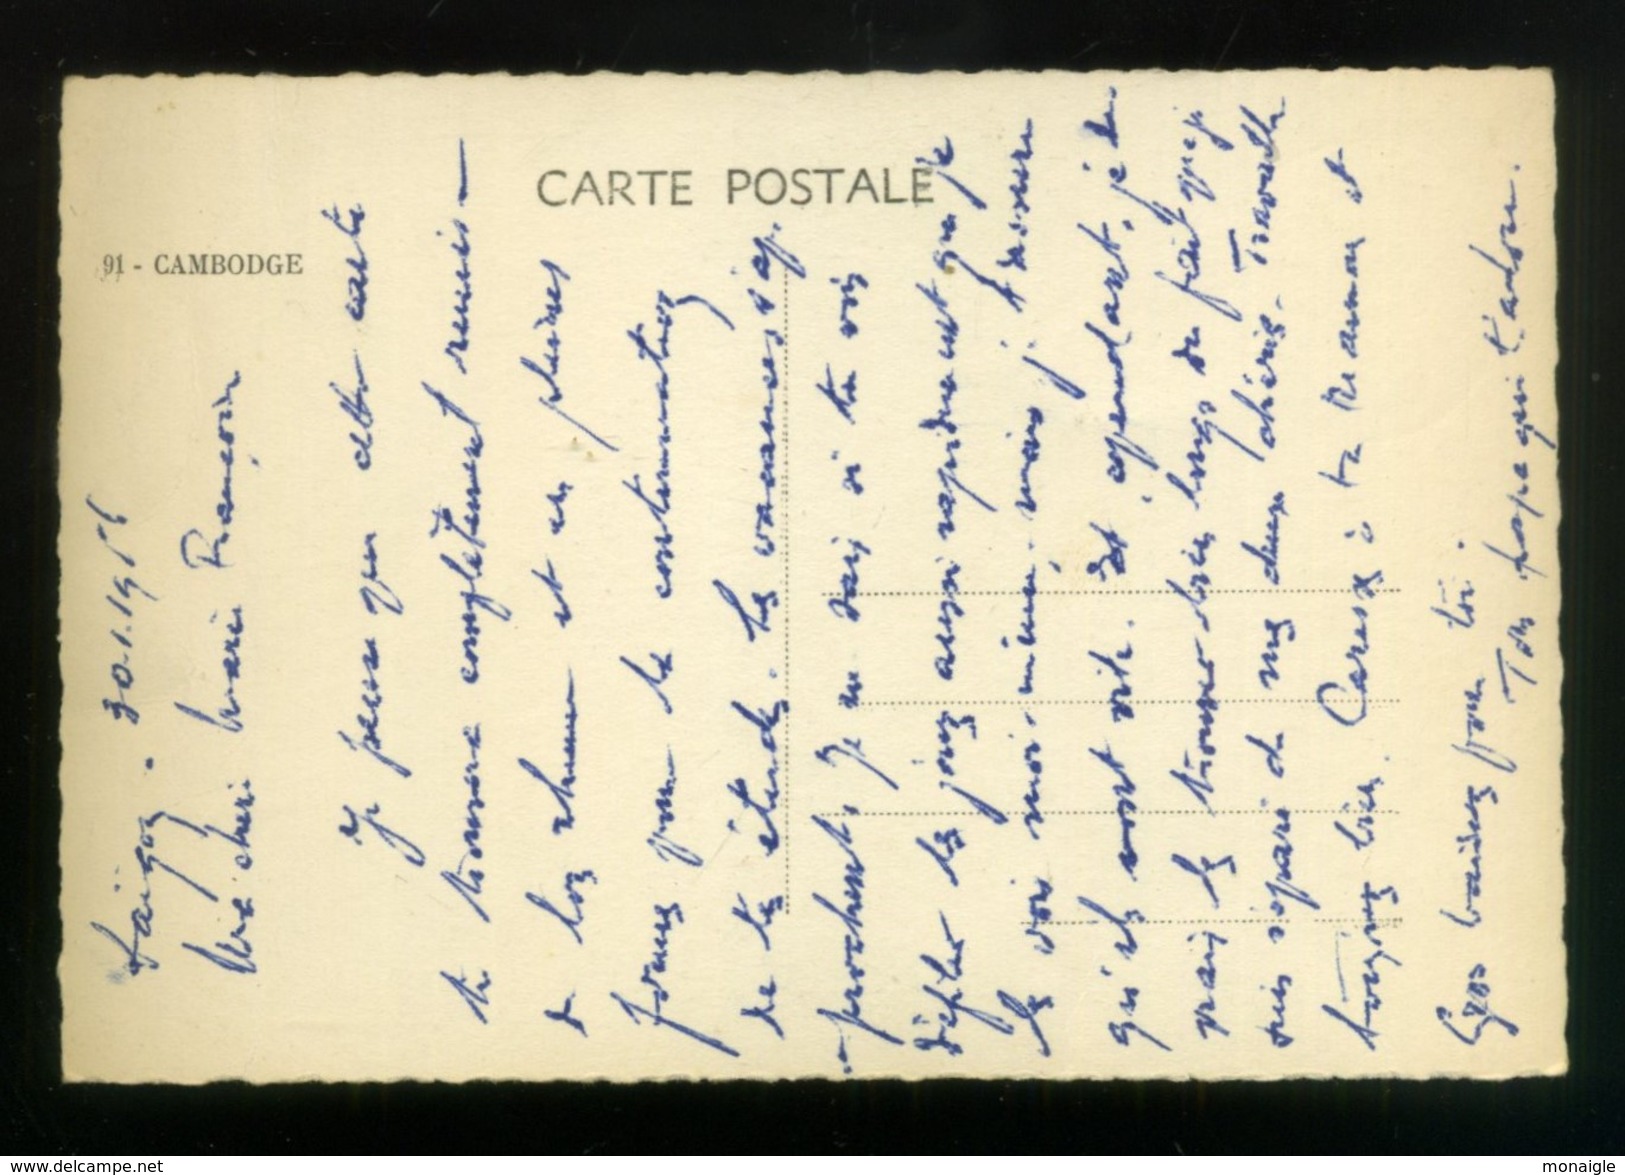 CARTE POSTALE
91 - CAMBODGE
Saïgon. 30.1.1956
Ma chérie Marie Françoise,
Je pense que cette carte
te trouvera complètement remise
de ton rhume et en pleines
formes pour la continuation
de tes études. Les vacances s'ap-
prochent, Je ne sais si tu vois
défiler les jours aussi rapidement que je
les vois moi-même, mais je t'assure
qu'ils vont vite. Et cependant, je de-
vrais les trouver bien longs du fait que je
suis séparé de mes deux chéris. Travaille
toujours bien. Caresse à ta Maman et
Gros baisers pour toi.
Ton papa qui t'adore.
www.delcampe.net
monaigle